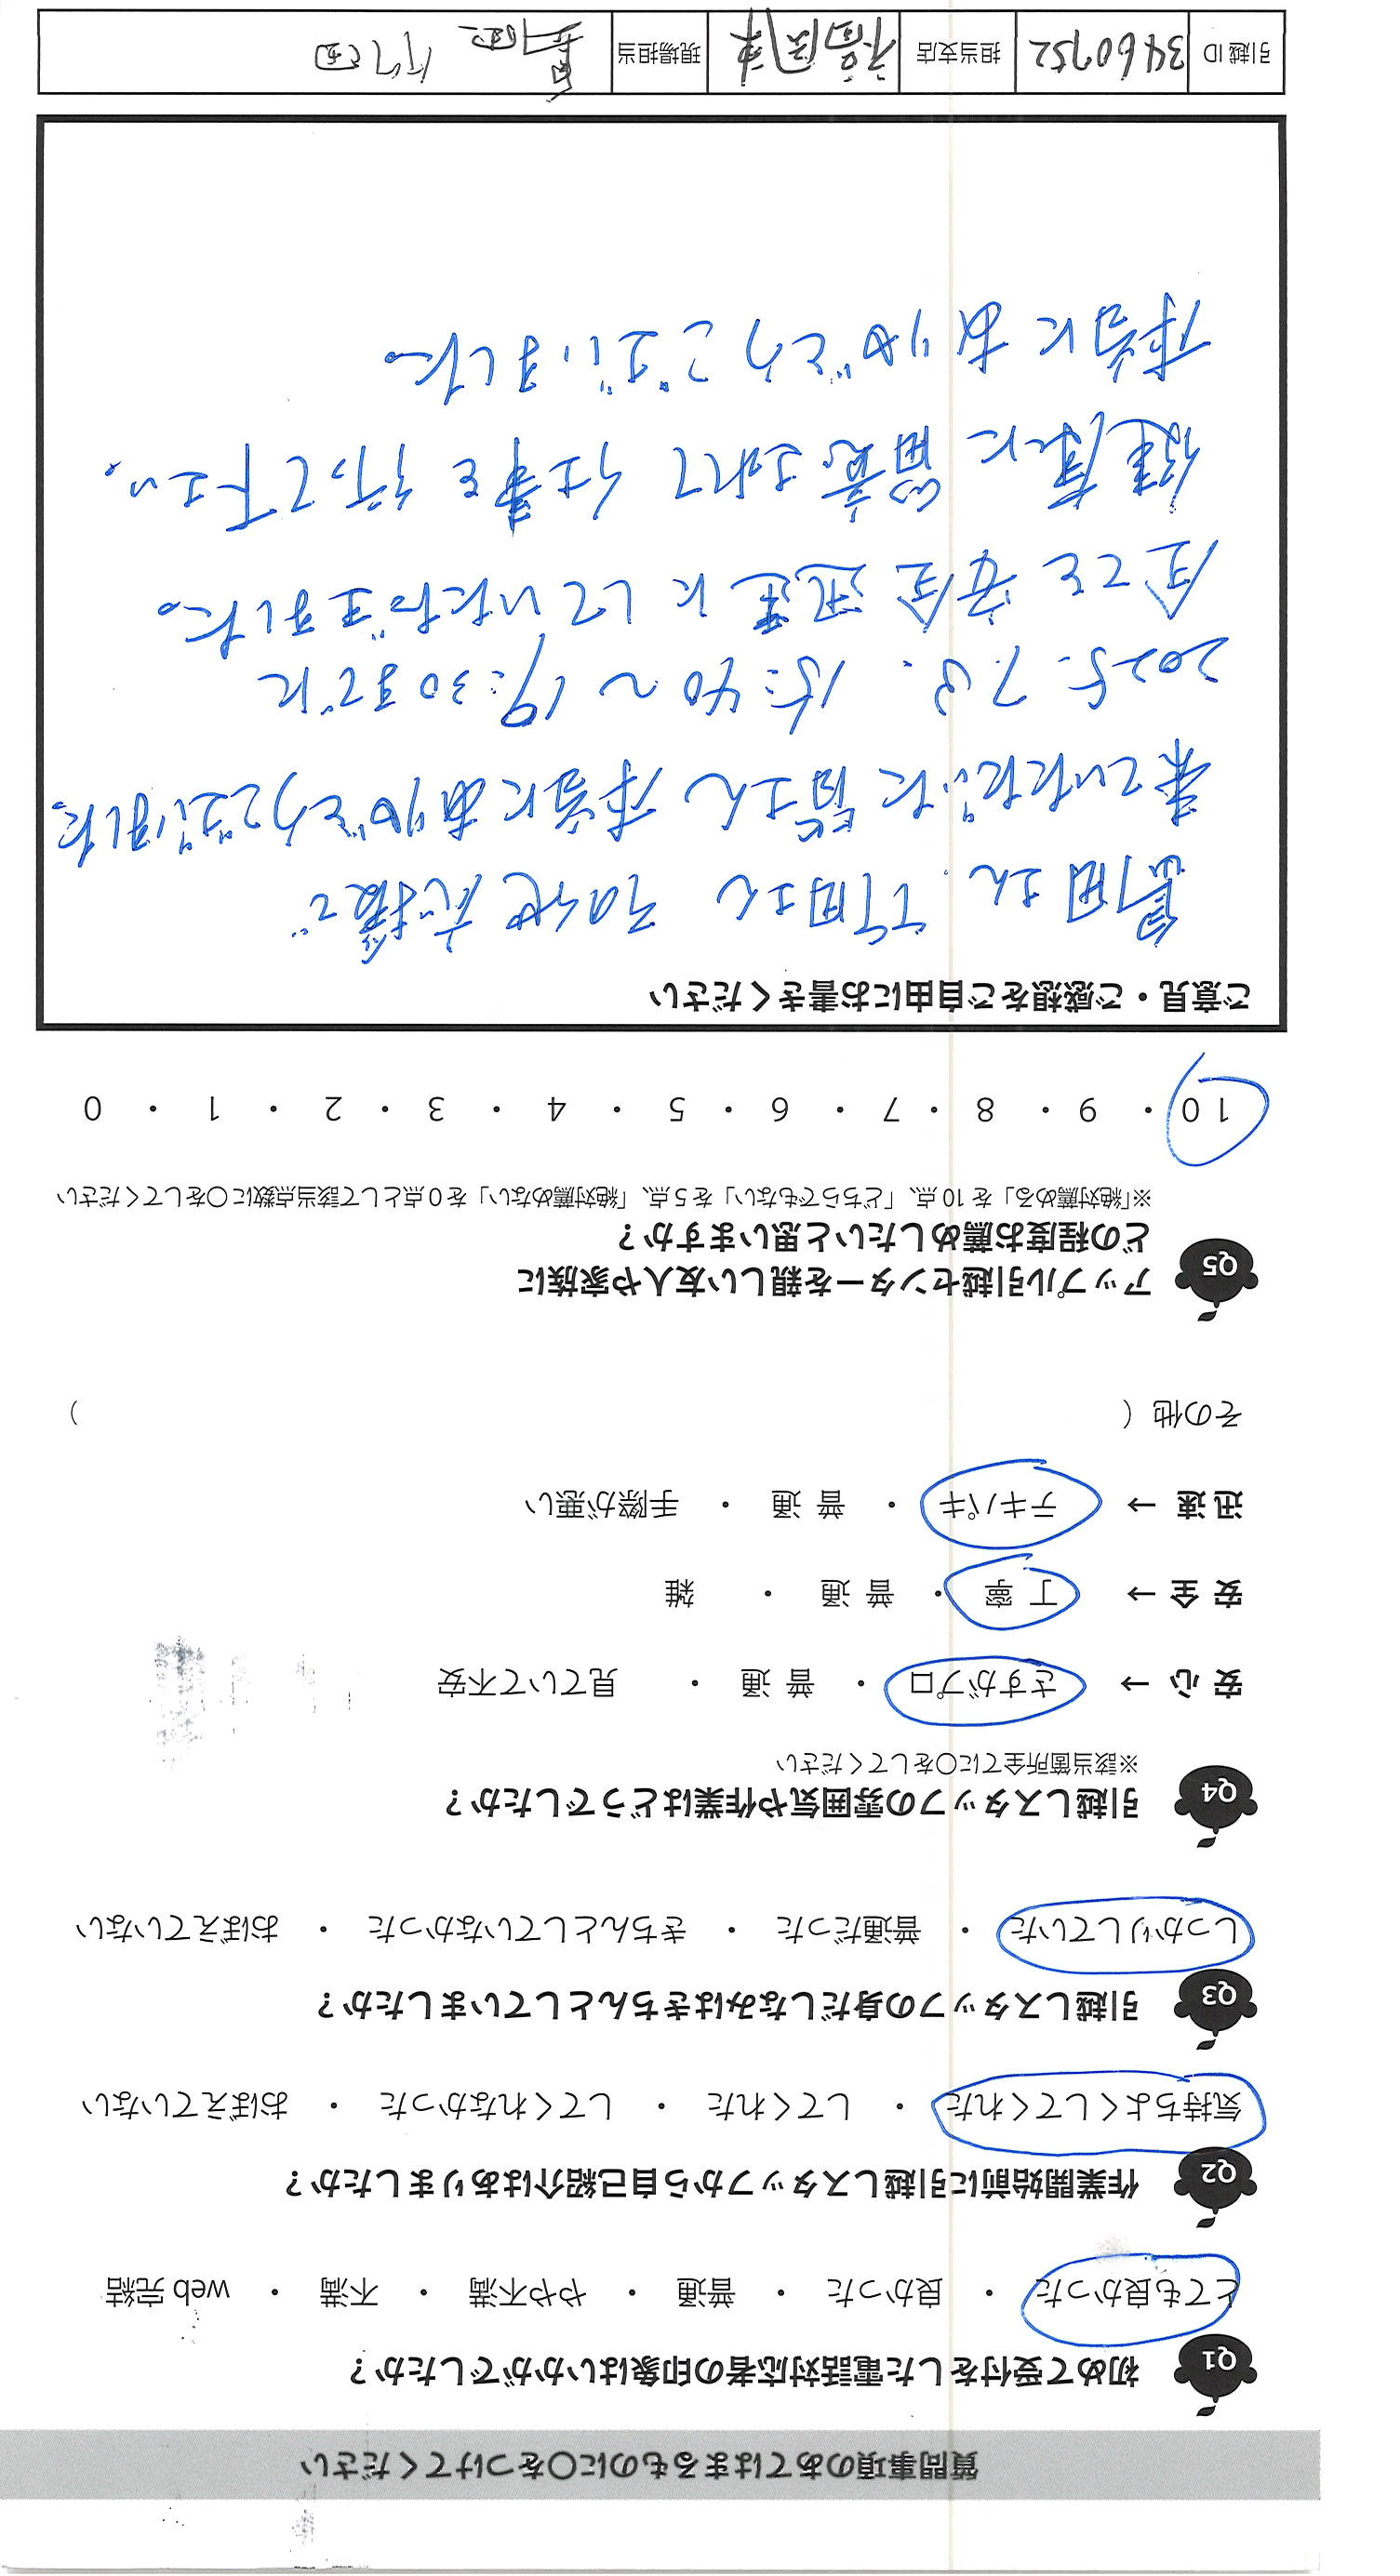 質問事項のあてはまるものに〇をつけてください
Q1 初めて受付をした電話対応者の印象はいかがでしたか？
とても良かった ・ 良かった ・ 普通 ・ やや不満 ・ 不満 ・ web 完結
Q2 作業開始前に引越しスタッフから自己紹介はありましたか？
気持ちよくしてくれた ・ してくれた ・ してくれなかった ・ おぼえていない
Q3 引越しスタッフの身だしなみはきちんとしていましたか？
しっかりしていた ・ 普通だった ・ きちんとしていなかった ・ おぼえていない
Q4 引越しスタッフの雰囲気や作業はどうでしたか？
※該当箇所全てに〇をしてください
安 心 → さすがプロ ・ 普 通 ・ 見ていて不安
安 全 → 丁 寧 ・ 普 通 ・ 雑
迅 速 → テキパキ ・ 普 通 ・ 手際が悪い
その他 ( )
Q5 アップル引越センターを親しい友人や家族に
どの程度お薦めしたいと思いますか？
※「絶対薦める」を 10 点、「どちらでもない」を 5 点、「絶対薦めない」を 0 点として該当点数に〇をしてください
10 ・ 9 ・ 8 ・ 7 ・ 6 ・ 5 ・ 4 ・ 3 ・ 2 ・ 1 ・ 0
ご意見・ご感想をご自由にお書きください
さん、竹田さん その他 応援で
来ていただいた 皆さん 本当にありがとうございました
2025. 7.8. 15:40～19:30までに
全てを 安全 迅速 にしていただきました。
健康に 留意されて 仕事を 行って下さい。
本当に ありがとう ございました。
引越 ID 3460752 担当支店 福岡東 現場担当 竹田